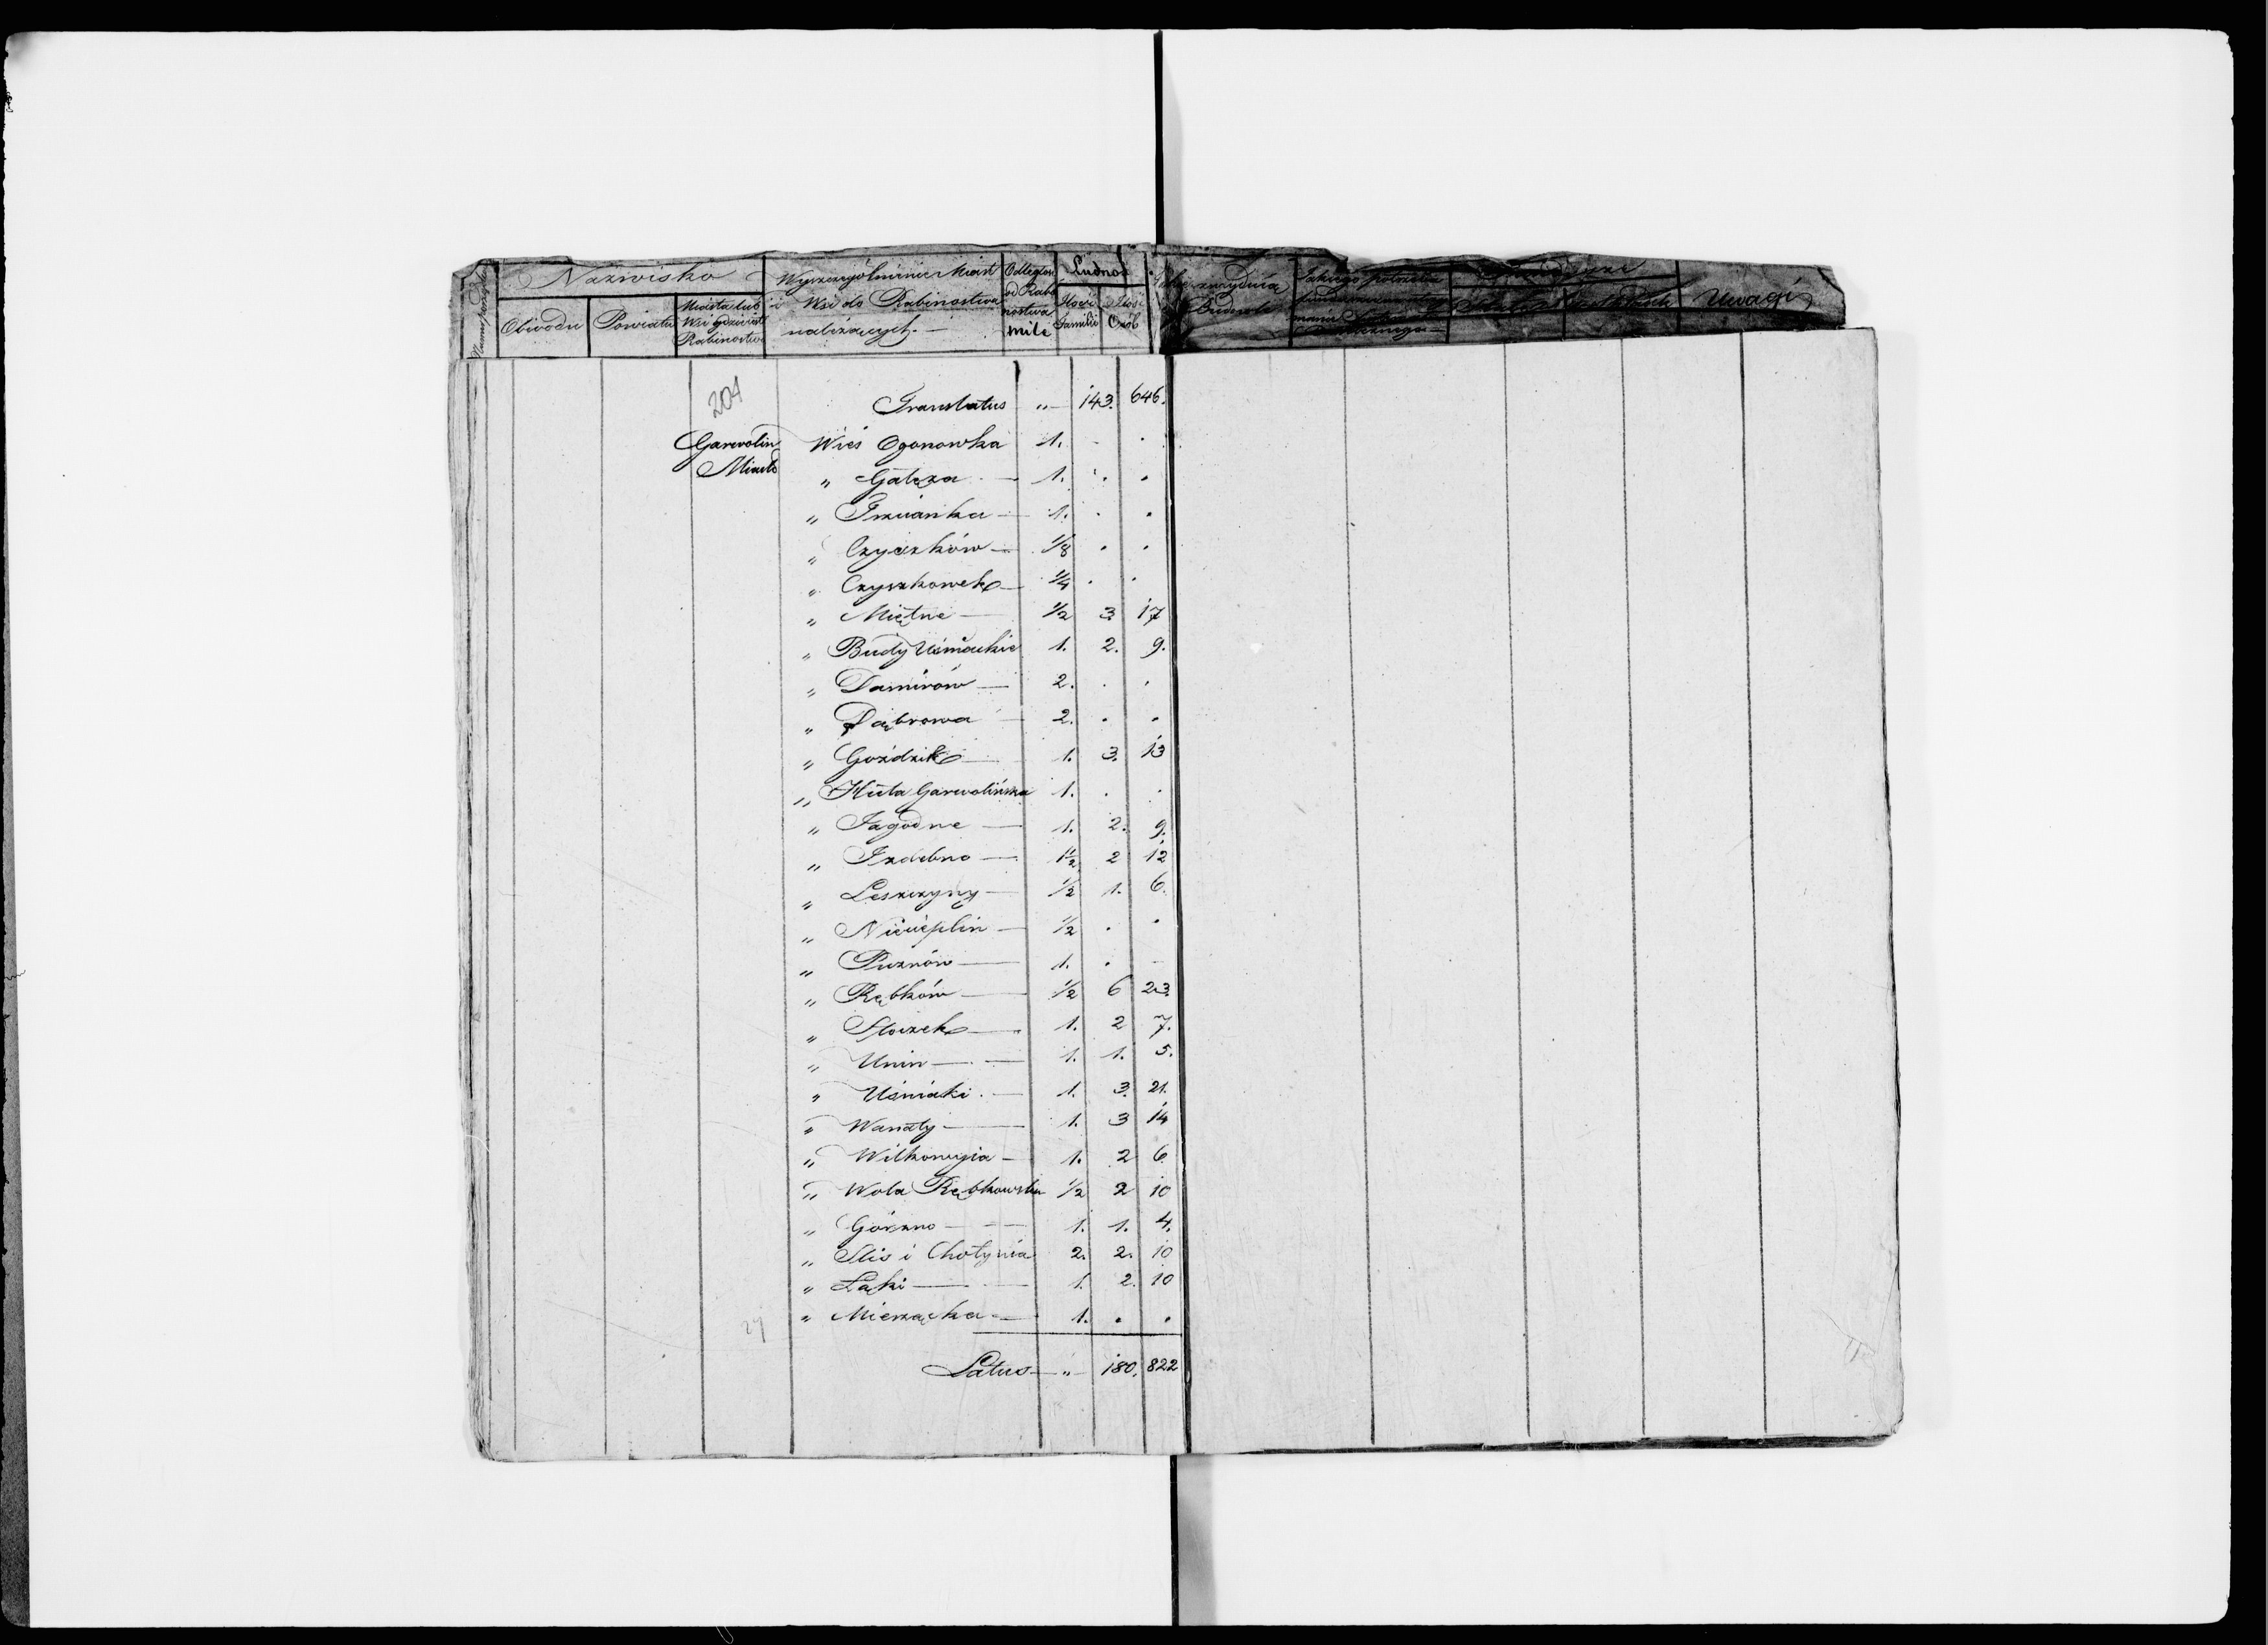 Nazwisko
Obwodu
Powiatu
Miasta lub
Wsi gdzie jest
Rabinostwo
Wyszczególnienie Miast
i Wsi do Rabinostwa
należących.
Odległość
od Rabi
nostwa
mile
Ludność
Ilość
Familii
Ilość
Osób
Uwagi
204
Translatus — „ — 143. 646.
Garwolin
Miasto
Wieś Ogonowka 1. . .
„ Gałęza — 1. . .
„ Trzcianka — 1. . .
„ Czyszków — 1/8 . .
„ Czyszkowek — 1/4 . .
„ Miętne — 1/2 3 17
„ Budy Uśniackie 1. 2. 9.
„ Damirów — 2. . .
„ Dąbrowa — 2. . .
„ Gozdzik — 1. 3. 13
„ Huta Garwolińska 1. . .
„ Jagodne — 1. 2. 9.
„ Izdebno — 1 1/2 2 12
„ Leszczyny — 1/2 1. 6.
„ Niecieplin — 1/2 . .
„ Puznów — 1. . —
„ Rębków — 1/2 6 23
„ Stoczek — 1. 2 7.
„ Unin — 1. 1. 5.
„ Uśniaki — 1. 3. 21.
„ Wanaty — 1. 3 14
„ Wilkowyja — 1. 2 6
„ Wola Rębkowska 1/2 2 10
„ Górzno — 1. 1. 4.
„ Slis i Chotynia 2. 2. 10
„ Łąki — 1. 2. 10
„ Mierzączka — 1. . .
27
Latus — „ — 180. 822